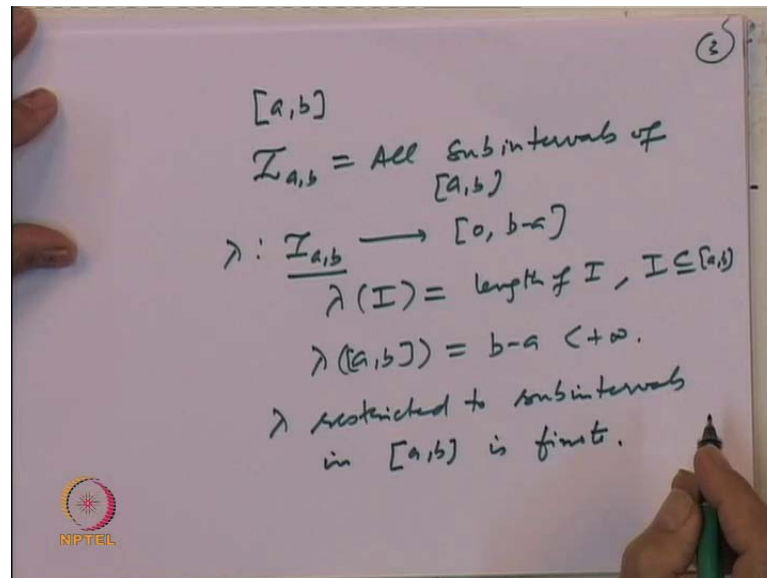 ③
[a,b]
I_{a,b} = All subintervals of
[a,b]
λ : I_{a,b} → [0, b-a]
λ(I) = length of I, I ⊆ [a,b]
λ([a,b]) = b-a < +∞.
λ restricted to subintervals
in [a,b] is finite.
NPTEL